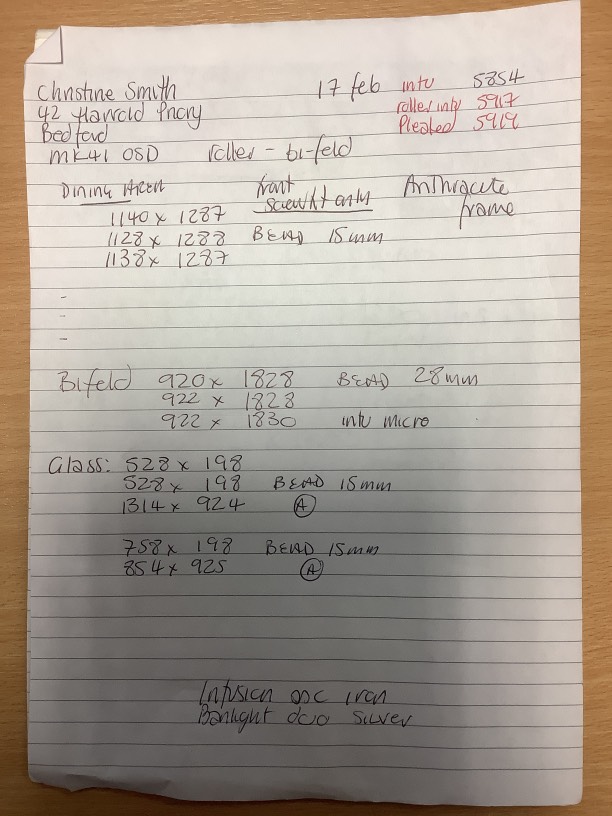 Christine Smith 17 feb intu 5854
42 Harrold Priory roller intu 5917
Bedford Pleated 5919
MK41 0SD roller - bi-feld
DINING AREA front Anthracite
1140 x 1287 screwfit only frame
1128 x 1288 BEAD 15mm
1138 x 1287
-
-
-
Bifeld 920 x 1828 BEAD 28mm
922 x 1828
922 x 1830 intu micro
Glass: 528 x 198
528 x 198 BEAD 15mm
1314 x 924 A
758 x 198 BEAD 15mm
854 x 925 A
Infusion asc iron
Banlight duo silver